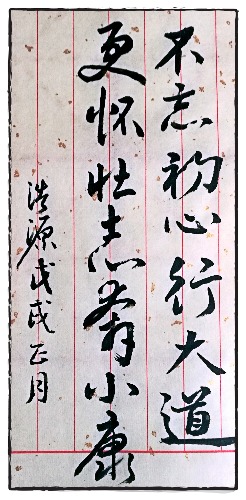 不忘初心行大道
更怀壮志奔小康
浩源戊戌正月